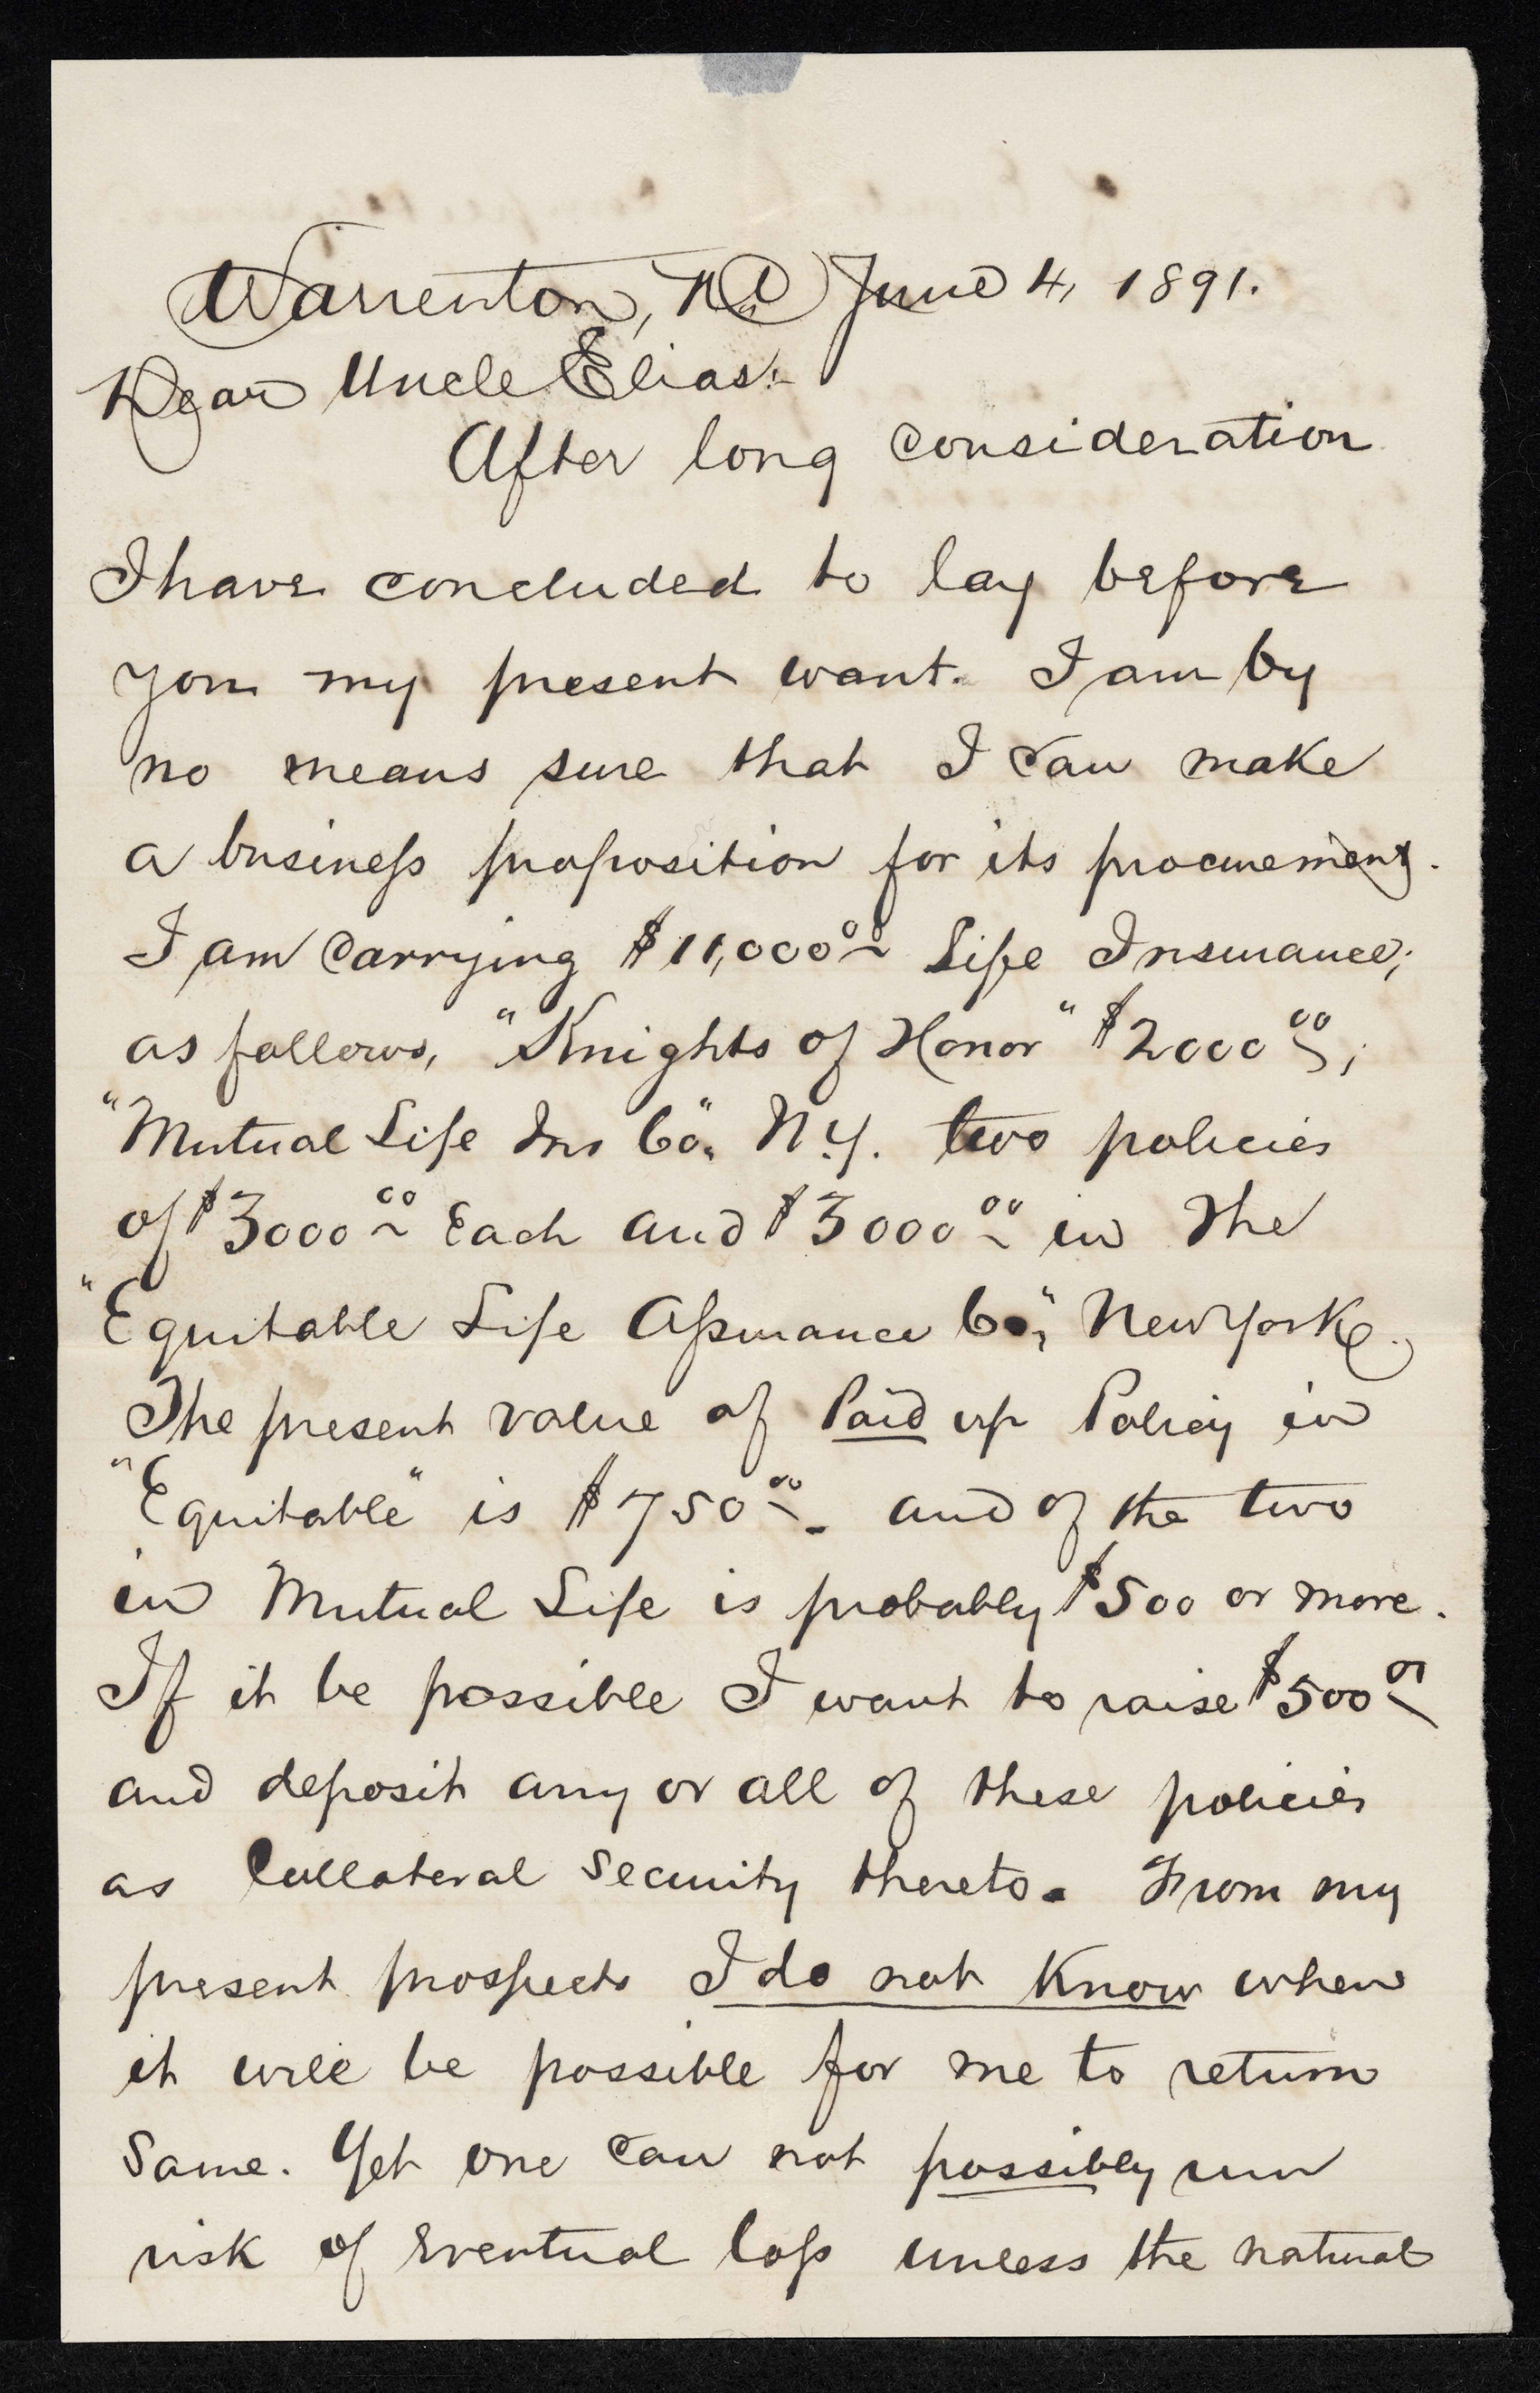 Warrenton, Va June 4, 1891.
Dear Uncle Elias:-
After long consideration
I have concluded to lay before
you my present want. I am by
no means sure that I can make
a business proposition for its procurement.
I am carrying $11,000 00 Life Insurance;
as follows, "Knights of Honor" $2000 00;
"Mutual Life Ins Co." N.Y. two policies
of $3000 00 Each and $3000 00 in the
"Equitable Life Assurance Co", New York.
The present value of Paid up Policy in
"Equitable" is $750 00. and of the two
in Mutual Life is probably $500 or more.
If it be possible I want to raise $500 00
and deposit any or all of these policies
as Collateral Security thereto. From my
present prospects I do not Know when
it will be possible for me to return
Same. Yet one can not possibly run
risk of Eventual loss unless the natural